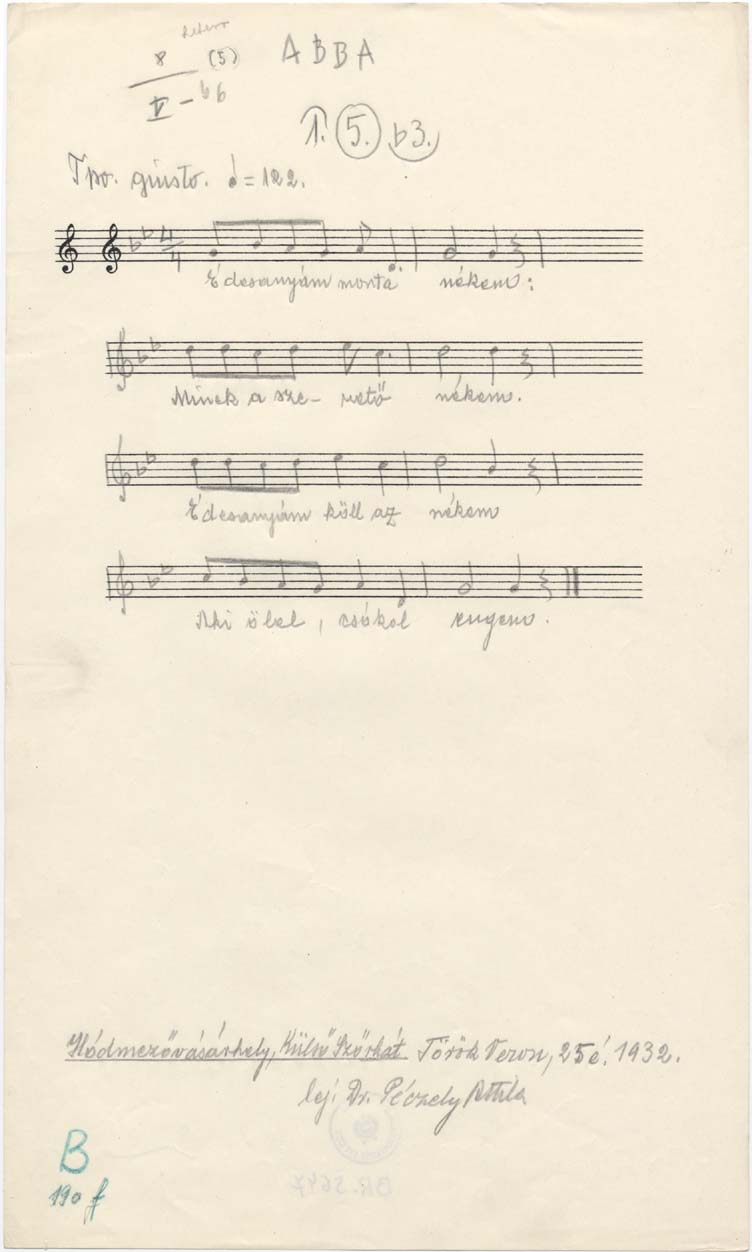 8 (5) ABBA
V - bb
1. 5. b3.
Tpo. giusto. = 122.
4/4
Édesanyám montá nékem:
Minek a sze- rető nékem.
Édesanyám köll az nékem
Aki ölel, csókol engem.
Hódmezővásárhely, Külső Szőrhát. Török Veron, 25 é. 1932.
lej: Dr. Péczely Attila
B
190 f